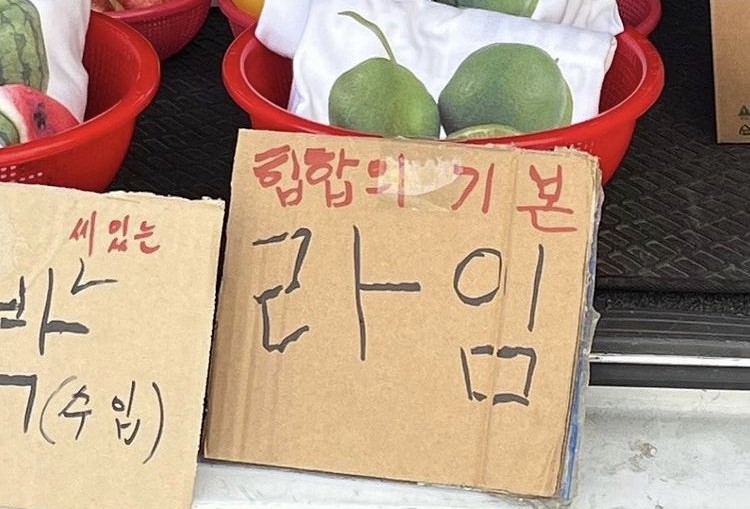 씨 있는
박
(수입)
힙합의 기본
라임